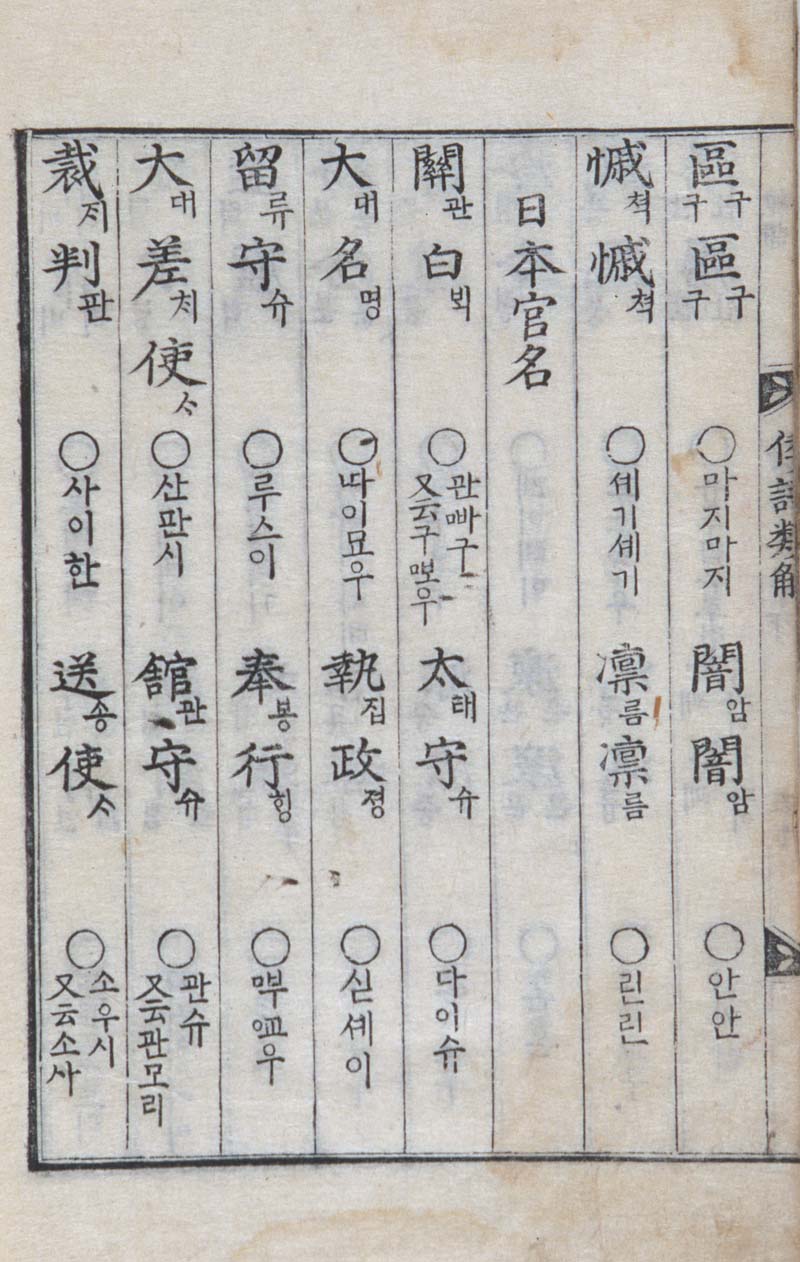 區구구區구구 ○마지마지 闇암闇암 ○안안
慽쳑慽쳑 ○셰기셰기 凛름凛름 ○린린
日本官名
關관白ᄇᆡᆨ ○관ꥱᅡ구 又云구ꥱᅩ우 太태守슈 ○다이슈
大대名명 ○ᄕᅡ이묘우 執집政졍 ○신셰이
留류守슈 ○루스이 奉봉行ᄒᆡᆼ ○ꥱᅮᅁᅭ우
大대差ᄎᆡ使ᄉᆞ ○산판시 舘관守슈 ○관슈 又云판모리
裁ᄌᆡ判판 ○사이한 送송使ᄉᆞ ○소우시 又云소사
倭語類解